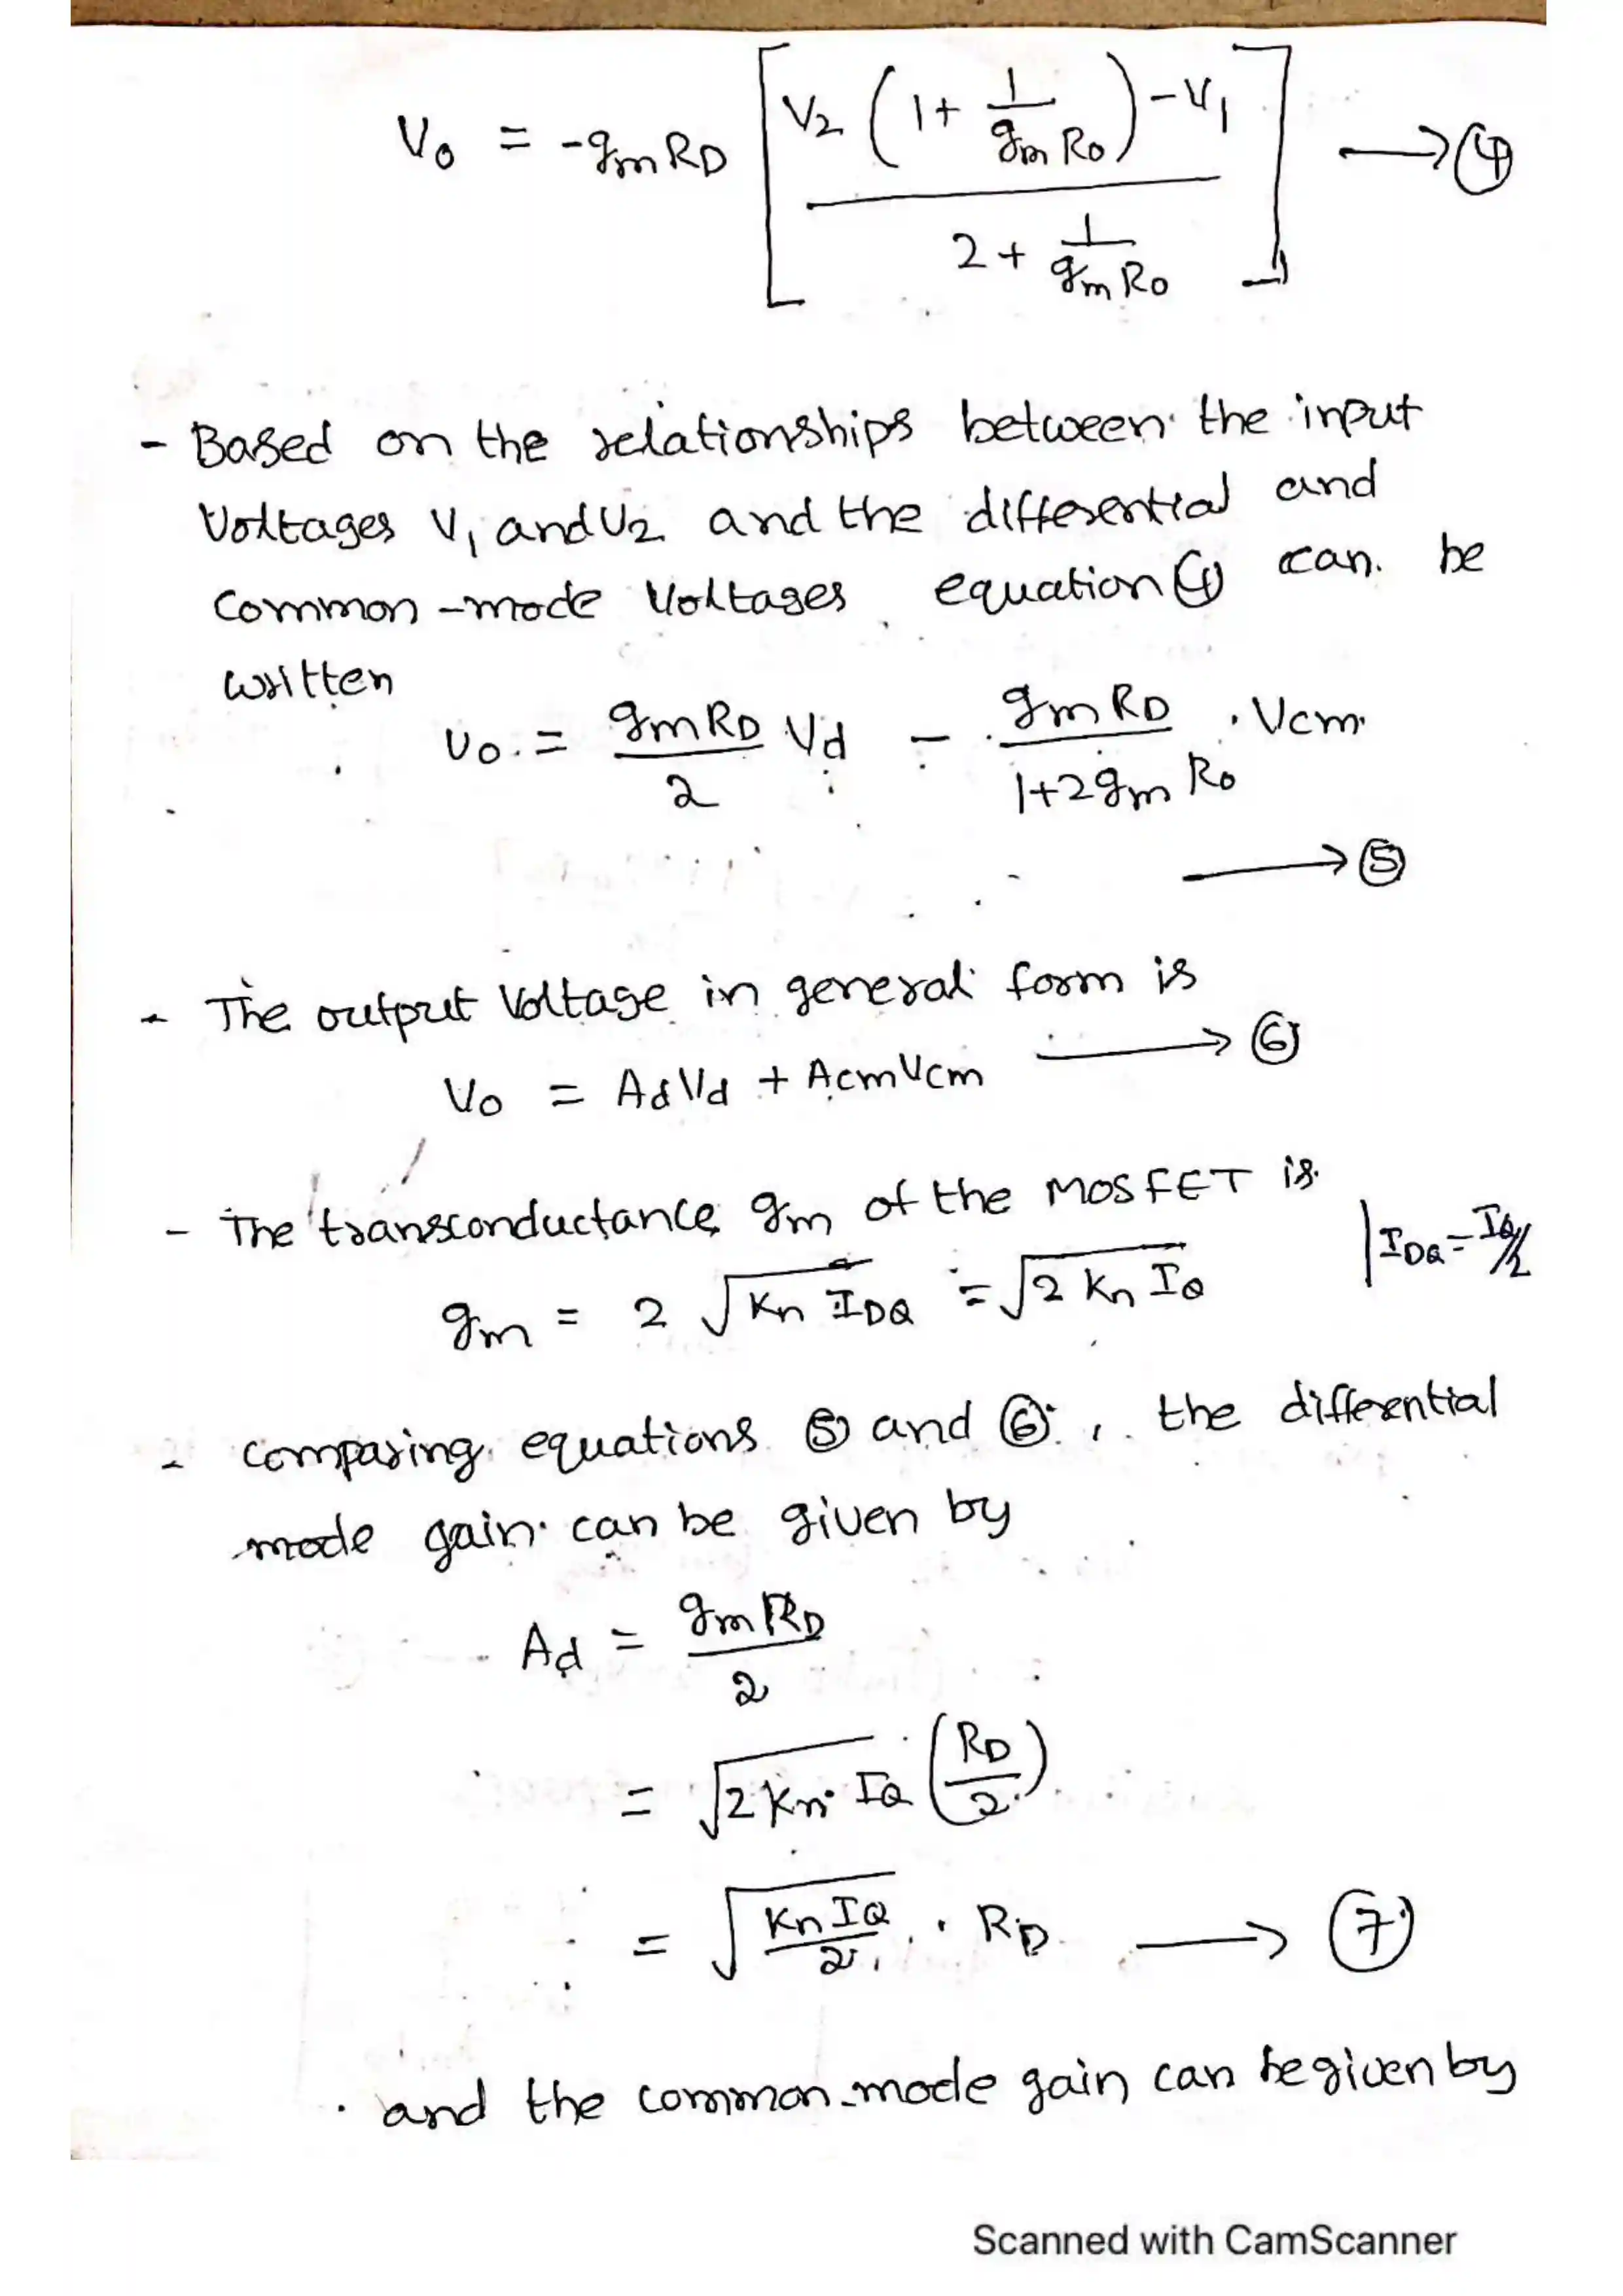 Vo = -gmRD [ V2 ( 1 + 1/(gm Ro) ) - V1 / 2 + 1/(gm Ro) ] → ④
- Based on the relationships between the input
Voltages V1 and V2 and the differential and
Common-mode Voltages equation ④ can be
written
Vo = gmRD/2 Vd - gmRD/(1+2gm Ro) . Vcm
→ ⑤
- The output Voltage in general form is
Vo = AdVd + AcmVcm → ⑥
- The transconductance gm of the MOSFET is
gm = 2 √(Kn IDQ) = √(2 Kn IQ) | IDQ = IQ/2
- comparing equations ⑤ and ⑥, the differential
mode gain can be given by
Ad = gmRD/2
= √(2Kn IQ) (RD/2)
= √(KnIQ/2) . RD → ⑦
and the common-mode gain can be given by
Scanned with CamScanner